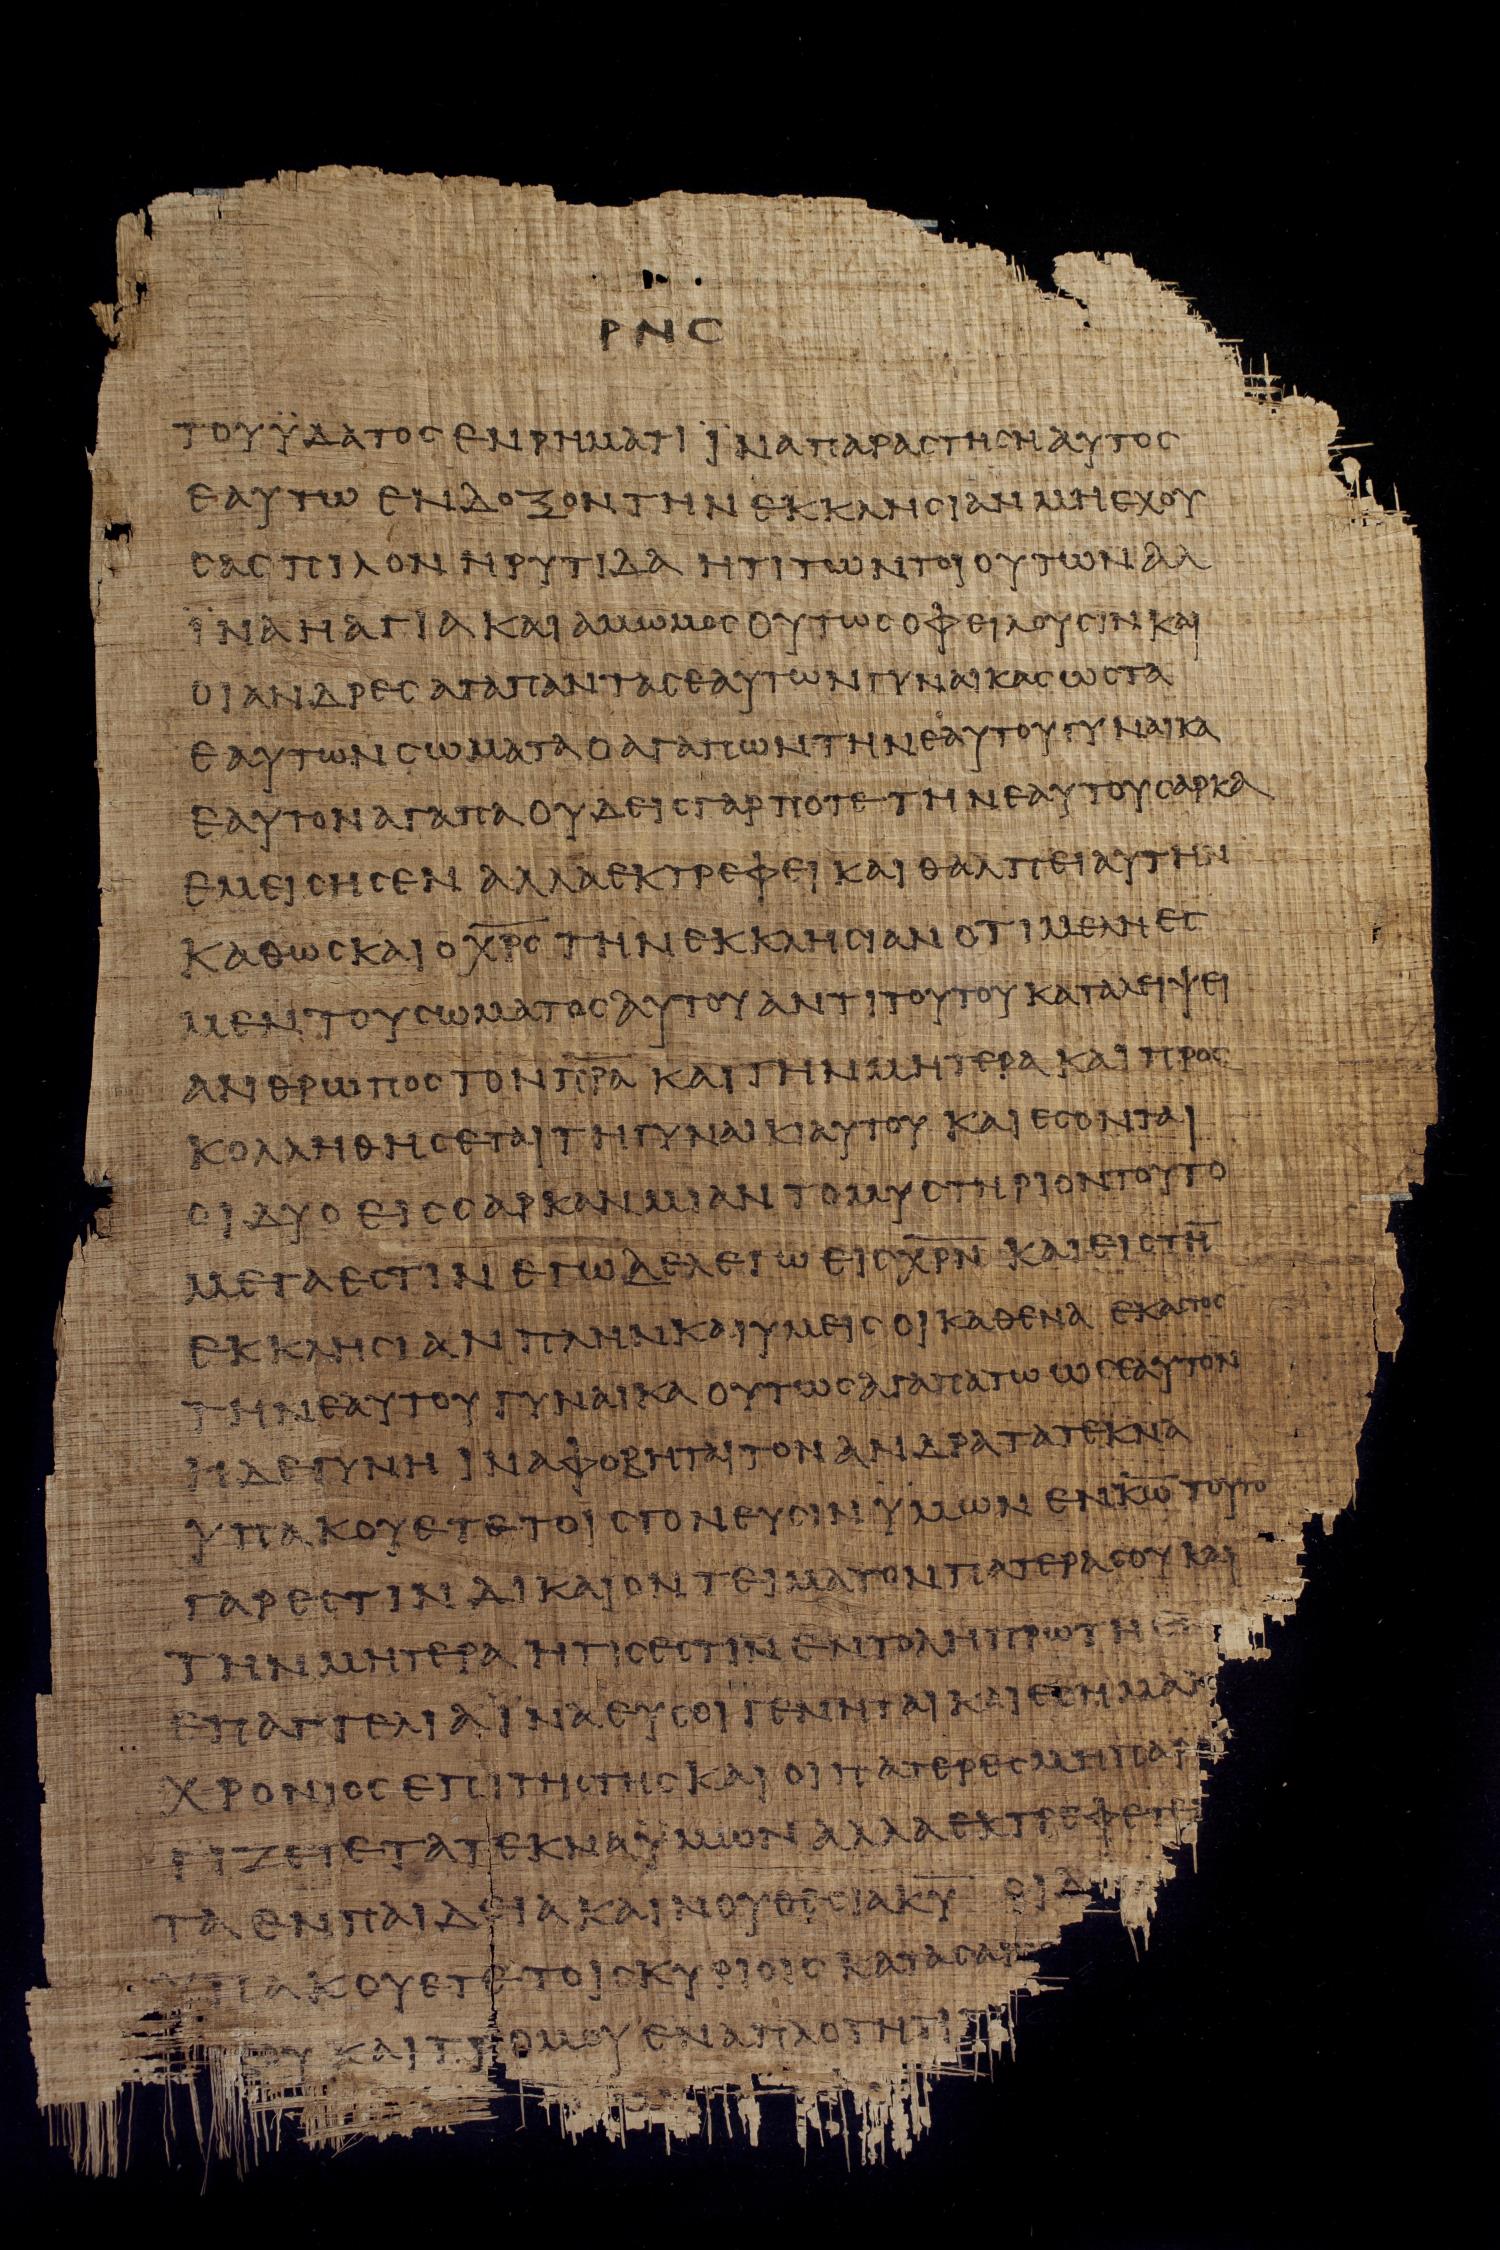 ΡΝϚ
ΤΟΥ ΫΔΑΤΟϹ ΕΝ ΡΗΜΑΤΙ ΪΝΑ ΠΑΡΑϹΤΗϹΗ ΑΥΤΟϹ
ΕΑΥΤΩ ΕΝΔΟΞΟΝ ΤΗΝ ΕΚΚΛΗϹΙΑΝ ΜΗ ΕΧΟΥ
ϹΑϹ ΠΙΛΟΝ Η ΡΥΤΙΔΑ Η ΤΙ ΤΩΝ ΤΟΙΟΥΤΩΝ ΑΛ
ΪΝΑ Η ΑΓΙΑ ΚΑΙ ΑΜΩΜΟϹ ΟΥΤΩϹ ΟΦΕΙΛΟΥϹΙΝ ΚΑΙ
ΟΙ ΑΝΔΡΕϹ ΑΓΑΠΑΝ ΤΑϹ ΕΑΥΤΩΝ ΓΥΝΑΙΚΑϹ ΩϹ ΤΑ
ΕΑΥΤΩΝ ϹΩΜΑΤΑ Ο ΑΓΑΠΩΝ ΤΗΝ ΕΑΥΤΟΥ ΓΥΝΑΙΚΑ
ΕΑΥΤΟΝ ΑΓΑΠΑ ΟΥΔΕΙϹ ΓΑΡ ΠΟΤΕ ΤΗΝ ΕΑΥΤΟΥ ϹΑΡΚΑ
ΕΜΕΙϹΗϹΕΝ ΑΛΛΑ ΕΚΤΡΕΦΕΙ ΚΑΙ ΘΑΛΠΕΙ ΑΥΤΗΝ
ΚΑΘΩϹ ΚΑΙ Ο Χ̅Ρ̅Ϲ̅ ΤΗΝ ΕΚΚΛΗϹΙΑΝ ΟΤΙ ΜΕΛΗ ΕϹ
ΜΕΝ ΤΟΥ ϹΩΜΑΤΟϹ ΑΥΤΟΥ ΑΝΤΙ ΤΟΥΤΟΥ ΚΑΤΑΛΕΙΨΕΙ
ΑΝΘΡΩΠΟϹ ΤΟΝ Π̅Ρ̅Α̅ ΚΑΙ ΤΗΝ ΜΗΤΕΡΑ ΚΑΙ ΠΡΟϹ
ΚΟΛΛΗΘΗϹΕΤΑΙ ΤΗ ΓΥΝΑΙΚΙ ΑΥΤΟΥ ΚΑΙ ΕϹΟΝΤΑΙ
ΟΙ ΔΥΟ ΕΙϹ ϹΑΡΚΑΝ ΜΙΑΝ ΤΟ ΜΥϹΤΗΡΙΟΝ ΤΟΥΤΟ
ΜΕΓΑ ΕϹΤΙΝ ΕΓΩ ΔΕ ΛΕΓΩ ΕΙϹ Χ̅Ρ̅Ν̅ ΚΑΙ ΕΙϹ ΤΗ̅
ΕΚΚΛΗϹΙΑΝ ΠΛΗΝ ΚΑΙ ΥΜΕΙϹ ΟΙ ΚΑΘ ΕΝΑ ΕΚΑϹΤΟϹ
ΤΗΝ ΕΑΥΤΟΥ ΓΥΝΑΙΚΑ ΟΥΤΩϹ ΑΓΑΠΑΤΩ ΩϹ ΕΑΥΤΟΝ
Η ΔΕ ΓΥΝΗ ΙΝΑ ΦΟΒΗΤΑΙ ΤΟΝ ΑΝΔΡΑ ΤΑ ΤΕΚΝΑ
ΥΠΑΚΟΥΕΤΕ ΤΟΙϹ ΓΟΝΕΥϹΙΝ ΫΜΩΝ ΕΝ Κ̅Ω̅ ΤΟΥΤΟ
ΓΑΡ ΕϹΤΙΝ ΔΙΚΑΙΟΝ ΤΕΙΜΑ ΤΟΝ ΠΑΤΕΡΑ ϹΟΥ ΚΑΙ
ΤΗΝ ΜΗΤΕΡΑ ΗΤΙϹ ΕϹΤΙΝ ΕΝΤΟΛΗ ΠΡΩΤΗ
ΕΠΑΓΓΕΛΙΑ ΪΝΑ ΕΥ ϹΟΙ ΓΕΝΗΤΑΙ ΚΑΙ ΕϹΗ ΜΑΚ
ΧΡΟΝΙΟϹ ΕΠΙ ΤΗϹ ΓΗϹ ΚΑΙ ΟΙ ΠΑΤΕΡΕϹ ΜΗ ΠΑΡ
ΓΙΖΕΤΕ ΤΑ ΤΕΚΝΑ ΫΜΩΝ ΑΛΛΑ ΕΚΤΡΕΦΕΤΕ
ΤΑ ΕΝ ΠΑΙΔΕΙΑ ΚΑΙ ΝΟΥΘΕϹΙΑ Κ̅Υ̅ ΟΙ Δ
ΥΠΑΚΟΥΕΤΕ ΤΟΙϹ ΚΥΡΙΟΙϹ ΚΑΤΑ ϹΑΡ
ΟΥ ΚΑΙ ΤΡΟΜΟΥ ΕΝ ΑΠΛΟΤΗΤΙ